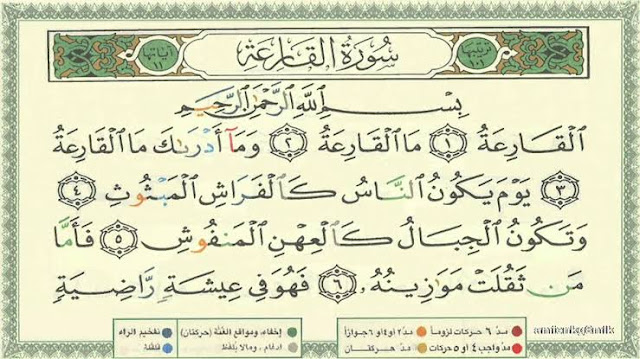 ترتيبها ١٠١ سُورَةُ القَارِعَةِ آياتها ١١
بِسْمِ ٱللَّهِ ٱلرَّحْمَٰنِ ٱلرَّحِيمِ
ٱلْقَارِعَةُ ١ مَا ٱلْقَارِعَةُ ٢ وَمَآ أَدْرَىٰكَ مَا ٱلْقَارِعَةُ
٣ يَوْمَ يَكُونُ ٱلنَّاسُ كَٱلْفَرَاشِ ٱلْمَبْثُوثِ ٤
وَتَكُونُ ٱلْجِبَالُ كَٱلْعِهْنِ ٱلْمَنفُوشِ ٥ فَأَمَّا
مَن ثَقُلَتْ مَوَٰزِينُهُۥ ٦ فَهُوَ فِى عِيشَةٍ رَّاضِيَةٍ
مدّ ٦ حركات لزوماً مدّ ٢ أو ٤ أو ٦ جوازاً إخفاء، ومواقع الغنّة (حركتان) تفخيم الراء
مدّ واجب ٤ أو ٥ حركات مدّ حركتان إدغام، ومالا يلفظ قلقلة